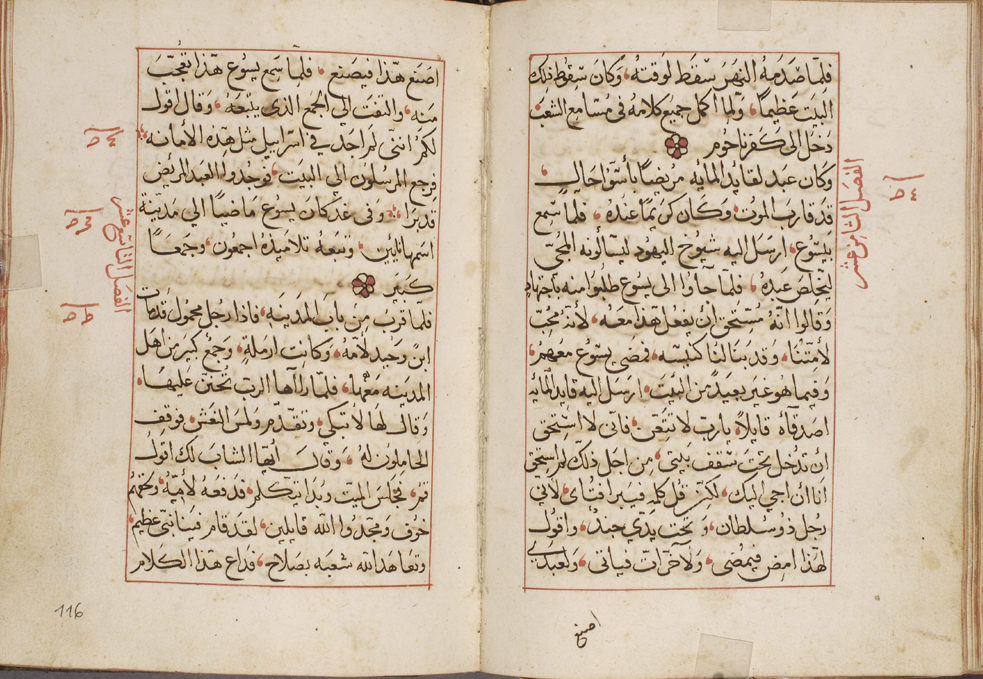 فلما صدمه النهر سقط لوقته وكان سقوط ذلك
البيت عظيماً ولما اكمل جميع كلامه فى مسامع الشعب
دخل الى كفرناحوم
وكان عبد لقايد المايه مريضاً بأسوَإ حال
قد قارب الموت وكان كريماً عنده فلما سمع
بيسوع ارسل اليه شيوخ اليهود ليسألونه المجى
ليخلص عبده فلما جآوا الى يسوع طلبوا منه باجتهاد
وقالوا انه مستحق ان يفعل هذا معه لأنه محب
لأمتنا وقد بنا لنا كنيسه فمضى يسوع معهم
وفيما هو غير بعيد من البيت ارسل اليه قايد المايه
اصدقآه قايلاً يا رب لا تتعن فانى لا استحق
أن تدخل تحت سقف بيتى من اجل ذلك لم استحق
انا ان اجى اليك لكن قل كلمه فيبرا فتاى لأنى
رجل ذو سلطان وتحت يدى جند واقول
لهذا امض فيمضى ولآخر ات فياتى ولعبدى
اصنع
الفصل الثامن عشر
اصنع هذا فيصنع فلما سمع يسوع هذا تعجب
منه والتفت الى الجمع الذى يتبعه وقال اقول
لكم اننى لم اجد فى اسراييل مثل هذه الأمانه
فرجع المرسلون الى البيت فوجدوا العبد المريض
قد برا وفى غد كان يسوع ماضياً الى مدينة
اسمها نايين وتبعه تلاميذه اجمعون وجمعاً
كبير
فلما قرب من باب المدينه فاذا رجل محمول قد مات
ابن وحيد لأمه وكانت ارملة وجمع كبير من اهل
المدينه معها فلما رآها الرب تحنن عليها
وقال لها لا تبكى وتقدم ولمس النعش فوقف
الحاملون له وقال أيها الشاب لك اقول
قم فجلس الميت وبدا يتكلم فدفعه لأمه
خوف ومجدوا الله قايلين لقد قام فينا نبى عظيم
وتعاهد الله شعبه بصلاح فذاع هذا الكلام
الفصل التاسع عشر
116